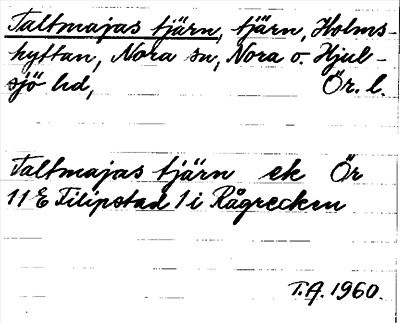 Taltmajas tjärn, tjärn, Holms-
hyttan, Nora sn, Nora o. Hjul-
sjö hd, Ör. l.
Taltmajas tjärn ek Ör
11 E Filipstad 1 i Rågrecken
T.A. 1960.